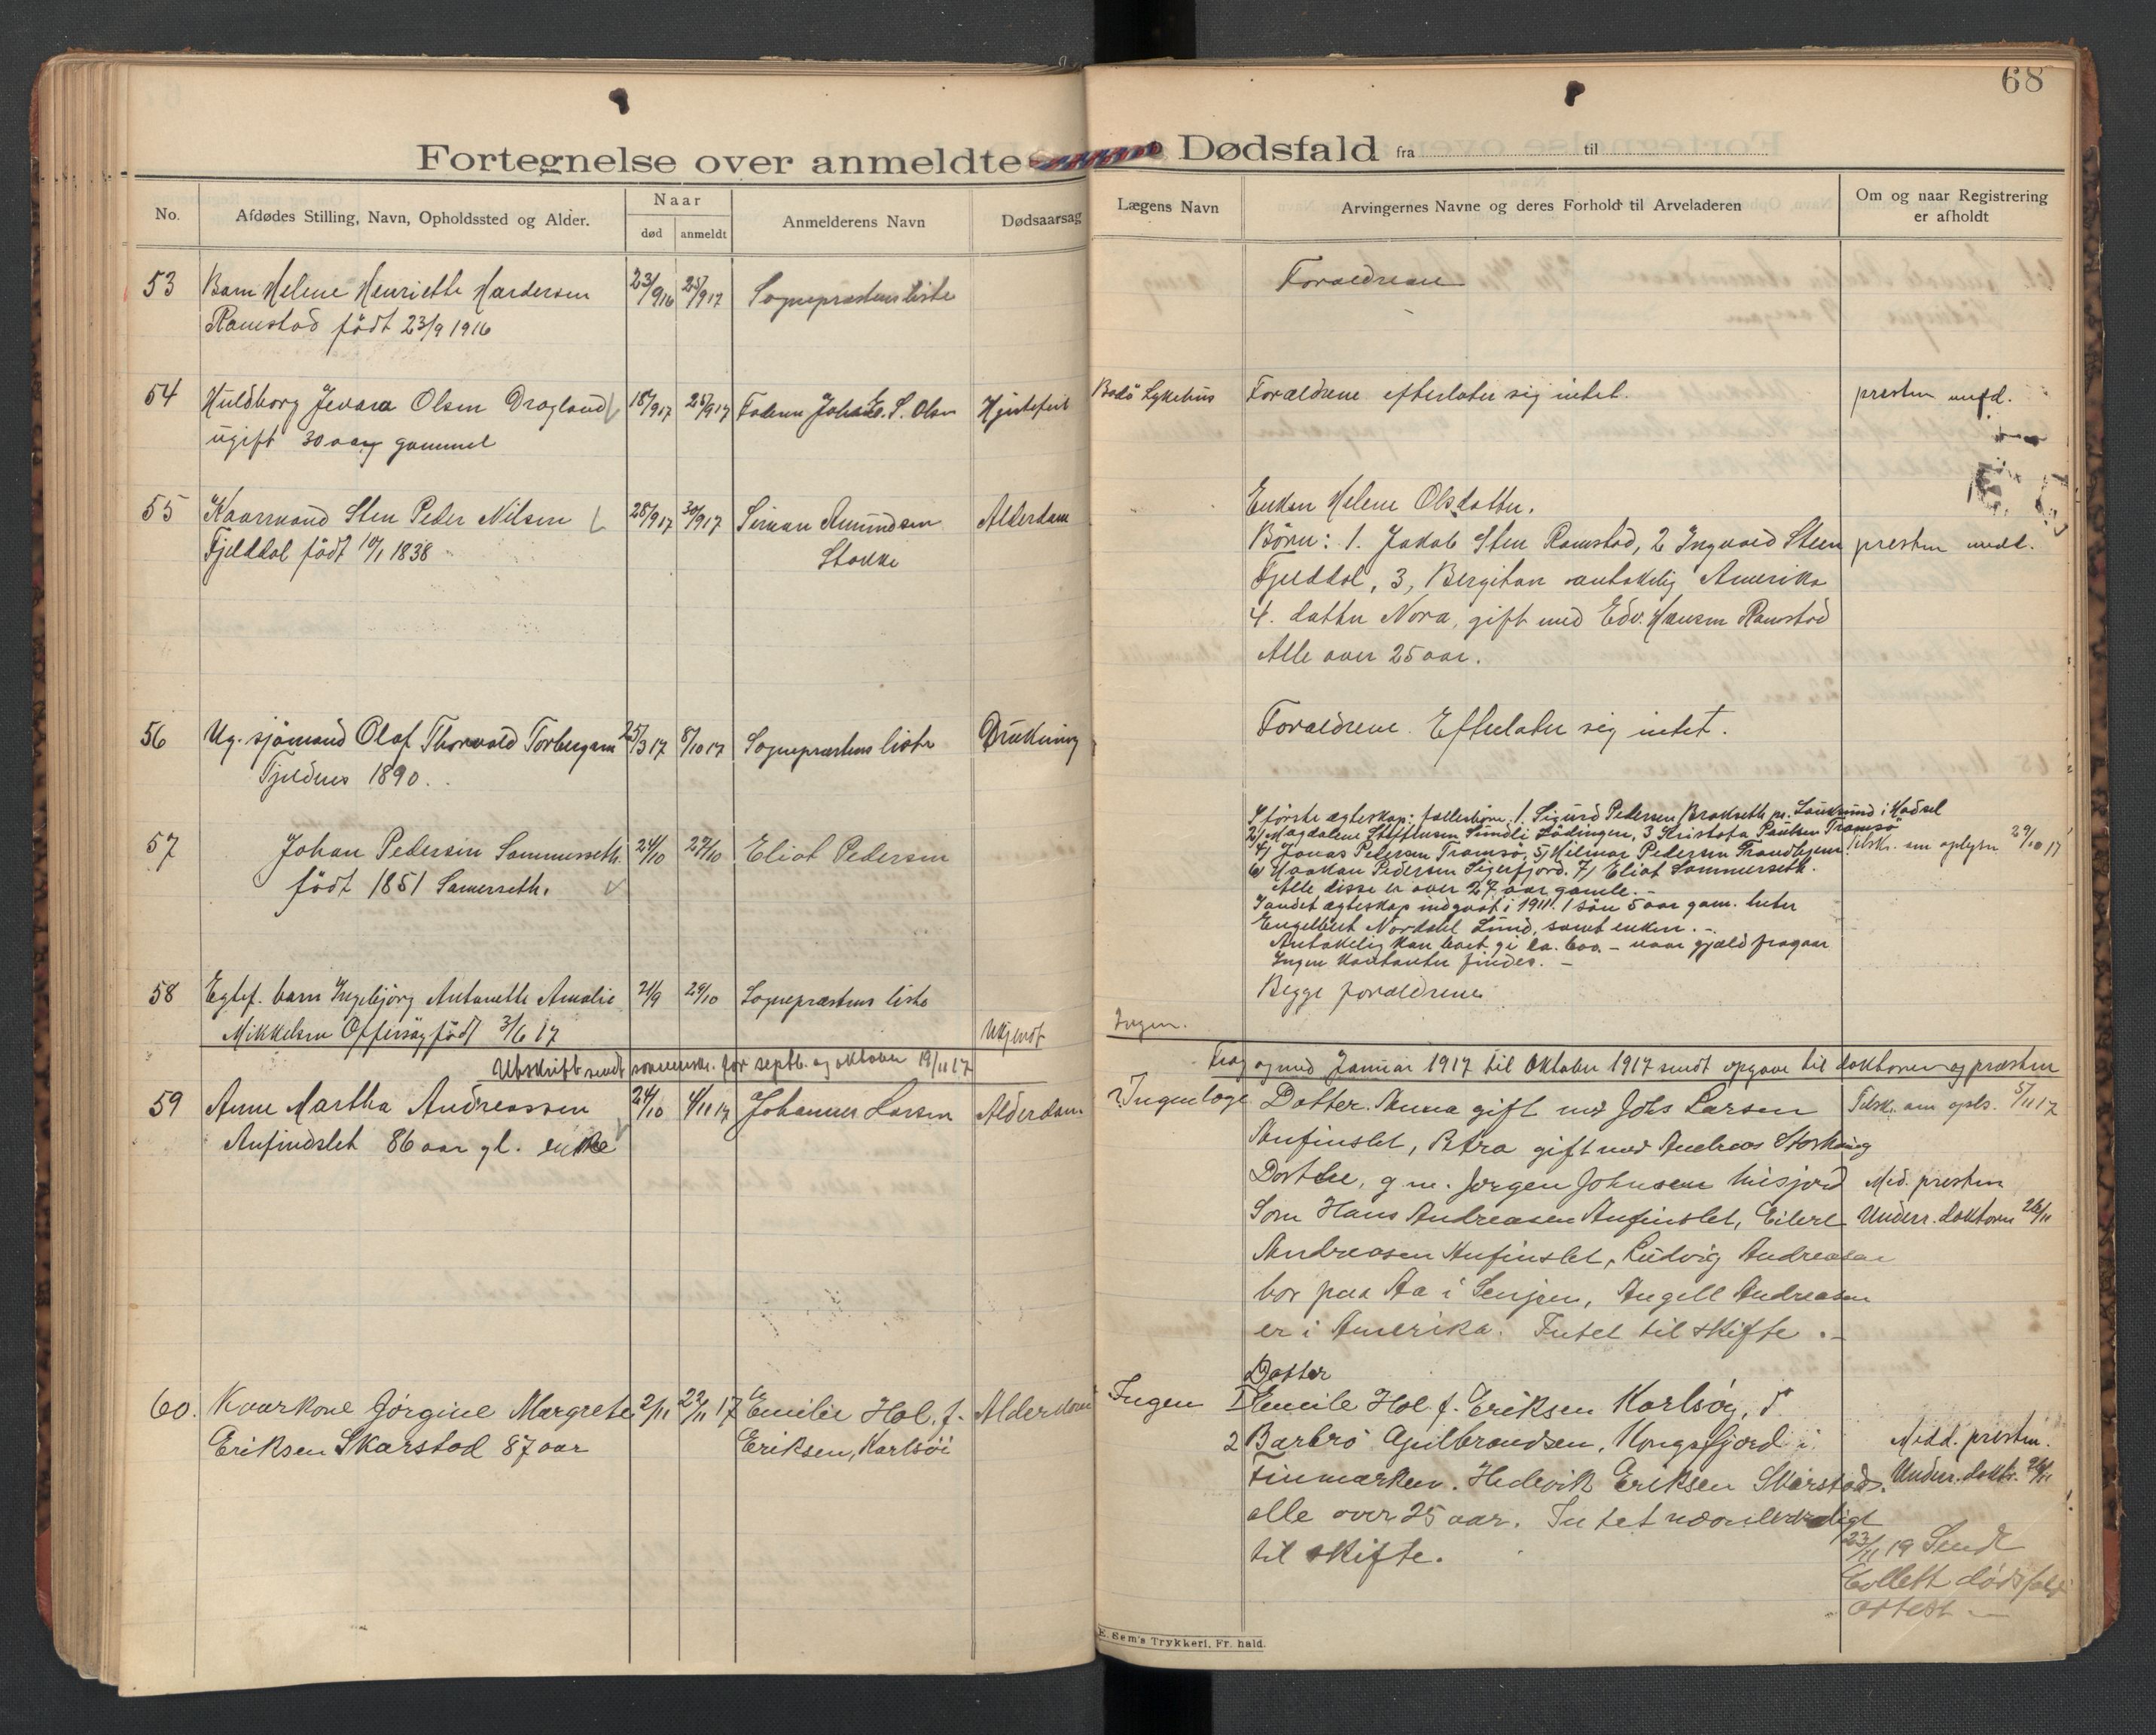 68
Fortegnelse over anmeldte Dødsfald fra til
No.
Afdødes Stilling, Navn, Opholdssted og Alder.
Naar
død
anmeldt
Anmelderens Navn
Dødsaarsag
Lægens Navn
Arvingernes Navne og deres Forhold til Arveladeren
Om og naar Registrering
er afholdt
53 Barn Helene Henriette 23/9 16 25/9 17 Sogneprestens liste Forældrene
Ramstad født 23/9 1916
54 Huldborg Olsen Dragland 18/9 17 25/9 17 Faderen Johan S. Olsen Hjertefeil Bodö Sykehus Forældrene efterlater sig intet. presten medd.
ugift 30 aar gammel
55 Kaarmand Sten Peder Nilsen 28/9 17 30/9 17 Simon Amundsen Alderdom
Fjelddal født 10/1 1838 Stokke
Enken Helene Olsdatter.
Börn: 1. Jakob Sten Ramstad, 2 Ingvald Steen presten medd.
Fjelddal, 3, Bergitan antakelig Amerika
4. datter Nora, gift med Edv. Hansen Ramstad
Alle over 25 aar.
56 Ug. sjömand Olaf Thorvald Torbergsen 25/3 17 8/10 17 Sogneprestens liste Drukning Forældrene. Efterlater sig intet.
Fjeldnes 1890.
57 Johan Pedersen Sommerseth. 24/10 27/10 Eliot Pedersen
født 1851 Samerseth.
I förste ægteskap: fællesbörn: 1. Sigurd Pedersen Brokseth pr. i Hadsel
2/ Magdalene Steffensen Sundli Lödingen, 3 Kristofa Paulsen Tromsö
4/ Jonas Pedersen Tromsö, 5/ Hilmar Pedersen Trondhjem. Tilskr. om oplysn 29/10 17
6/ Haakan Pedersen Sigerfjord. 7/ Eliot Sommerseth.
Alle disse er over 27 aar gamle. -
I andet ægteskap indgaat i 1911. 1 sön 5 aar gam. heter
Engelbert Nordahl Lund, samt enken. -
Antakelig kan boet gi ca. 600. - naar gjæld fragaar
Ingen kontanter findes. -
58 Egtef. barn Ingebjörg Antonette Amalie 21/9 29/10 Sogneprestens liste Begge forældrene
Mikkelsen Offersöy født 3/6 17 Ukjendt Ingen.
Utskrift sendt sorenskr. for septb. og oktober 19/11 17
Fra og med Januar 1917 til Oktober 1917 sendt opgave til doktoren og præsten
59 Anne Martha Andreassen 24/10 4/11 17 Johannes Larsen Alderdom Ingen læge Datter. Anna gift med Johs Larsen Tilskr. om opls. 5/11 17
Anfindslet 86 aar gl. enke
Anfinslet, Petra gift med Andreas Storhaug
Dorthe, g m. Jørgen Johnsen Misfjord Med. presten
Søn Hans Andreasen Anfinslet, Eilert Underr. doktoren 26/11
Andreasen Anfinslet, Ludvig Andreasen
bor paa Aa i Senjen, Angell Andreasen
er i Amerika. Intet til skifte. -
60. Kaarkone Jørgine Margrete 2/11 22/11 17 Emilie Hol. f. Alderdom Ingen
Eriksen Skarstad 87 aar Eriksen, Karlsöi
Datter
1 Emilie Hol f. Eriksen Karlsøy,
2 Barbro Gulbrandsen, Kongsfjord i Medd. presten.
Finmarken. Hedevik Eriksen Skarstad. Underr. doktr. 26/11
alle over 25 aar. Intet nævneværdigt
til skifte.
23/11 19 Sendt
Collett dødsfalds
attest -
E. Sem's Trykkeri, Fr. hald.